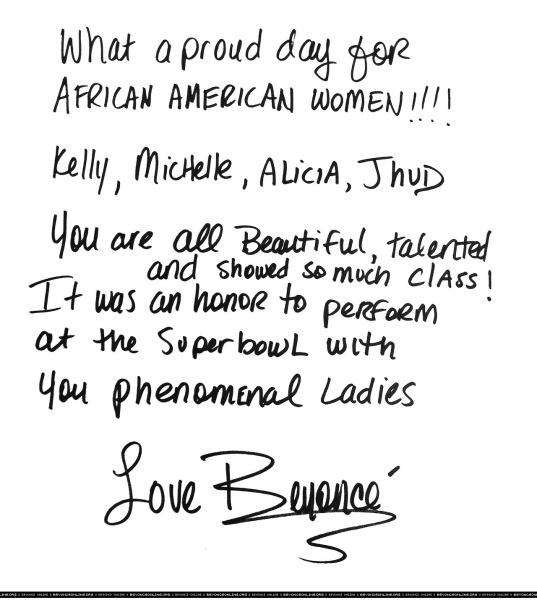 What a proud day for
AFRICAN AMERICAN WOMEN!!!!
Kelly, Michelle, ALiciA, JHUD
You are all Beautiful, talented
and showed so much CLASS!
It was an honor to perform
at the SuperbowL with
you phenomenal Ladies
Love Beyoncé